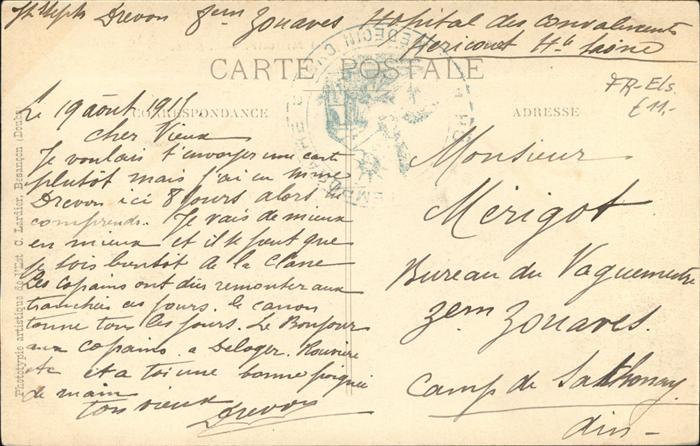 Drevon 8em Zouaves Hopital des convalescents
Héricourt Hte Saône
CARTE POSTALE
CORRESPONDANCE
ADRESSE
FR-Els.
£ 11,-
Le 19 août 191
cher Vieux
Je voulais t'envoyer une carte
plutôt mais j'ai eu mme
Drevon ici 8 jours alors tu
comprends. Je vais de mieux
en mieux et il se peut que
je sois bientôt de la Classe
Les copains ont dû remonter aux
tranchées ces jours. le canon
tonne tous les jours. Le Bonjour
aux copains. a Deloger. Rouvière
etc et a toi une bonne poignée
de main
ton vieux
Drevon
Monsieur
Mérigot
Bureau du Vaguemestre
3em Zouaves.
Camp de Sathonay
Ain
Phototypie artistique de l'Est C. Lardier, Besançon (Doubs)
MÉDECIN